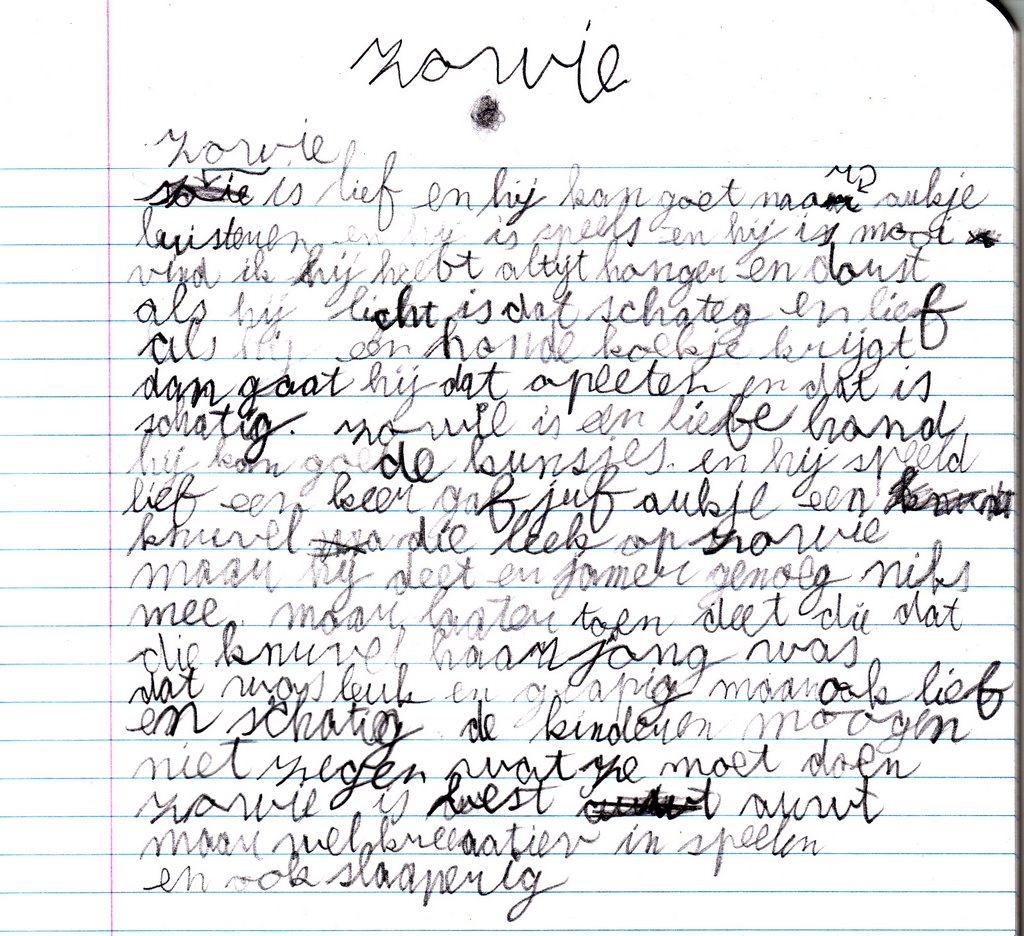 zowie
zowie
is lief en hij kan goet naar aukje
luisteren en hij is speels en hij is mooi
vind ik hij heebt altijt honger en dorst
als hij licht is dat schateg en lief
als hij een honde koekje krijgt
dan gaat hij dat opeeten en dat is
schatig. zowie is een liebe hond
hij kan goede kunsjes. en hij speeld
lief een keer gaf juf aukje een
knuvel die leek op zowie
maar hij deet er jamer genoeg niks
mee. maar laater toen deet die dat
die knuvel haar jong was
dat was leuk en grapig maar ook lief
en schatig de kinderen moogen
niet zegen wat ze moet doen
zowie is best auwt
maar wel kreeaatiev in speelen
en ook slaaperig